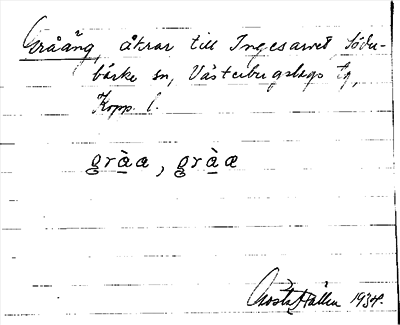 Gråäng, åkrar till Ingesarvet, Söder-
bärke sn, Västerbergslags tg,
Kopp. l.
gràa, gràæ
Gösta Hallén 1934.